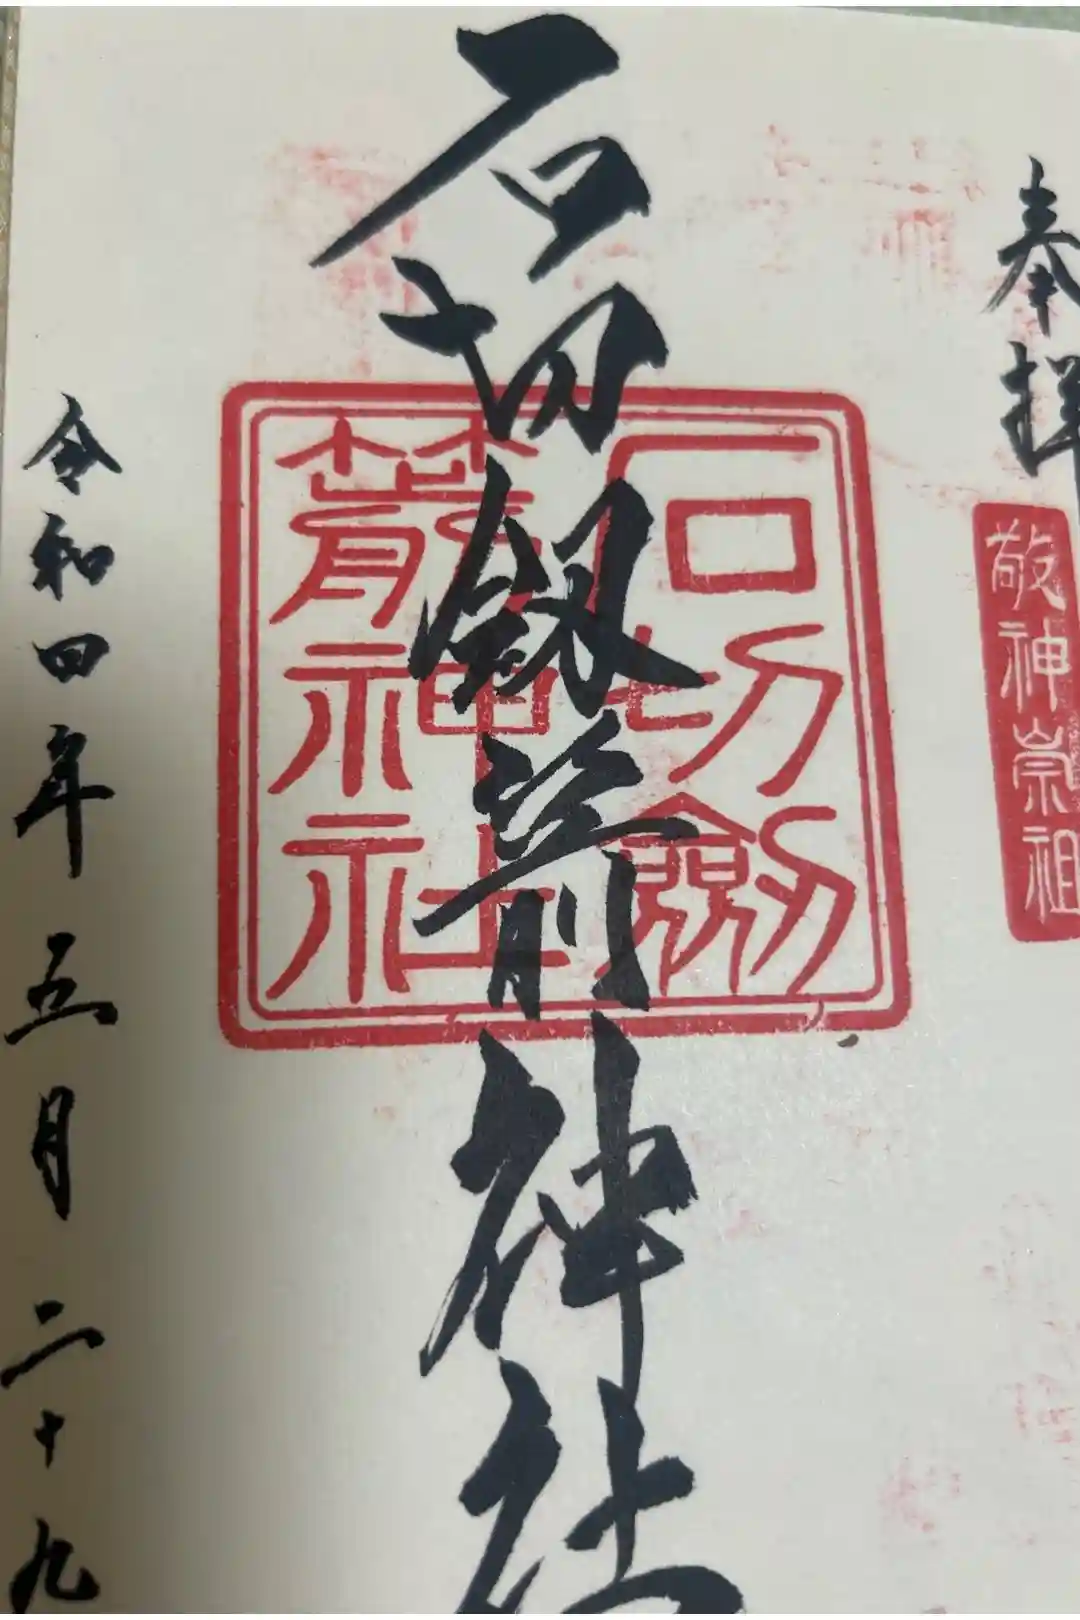 奉拝
敬神崇祖
石切劔箭神社
石切劔
箭神社
令和四年五月二十九